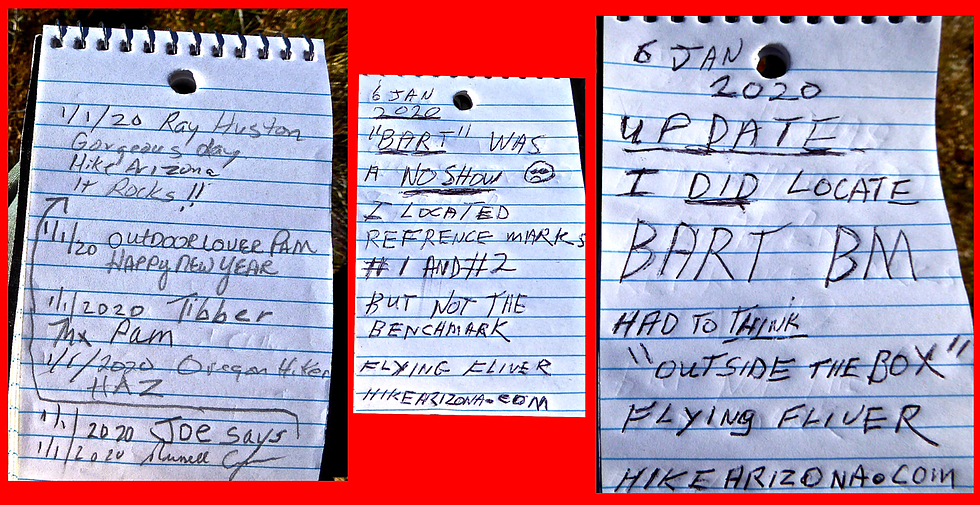 1/1/20 Ray Huston
Gorgeous day
Hike Arizona
It Rocks!!
1/1/20 OUTDOOR LOVER PAM
HAPPY NEW YEAR
1/1/2020 Tibber
Thx Pam
1/1/2020 Oregon Hiker
HAZ
1/1/2020 Joe says
1/1/2020
6 JAN
2020
"BART" WAS
A NO SHOW
I LOCATED
REFRENCE MARKS
#1 AND #2
BUT NOT THE
BENCHMARK
FLYING FLIVER
HIKEARIZONA.COM
6 JAN
2020
UPDATE
I DID LOCATE
BART BM
HAD TO THINK
"OUTSIDE THE BOX"
FLYING FLIVER
HIKEARIZONA.COM